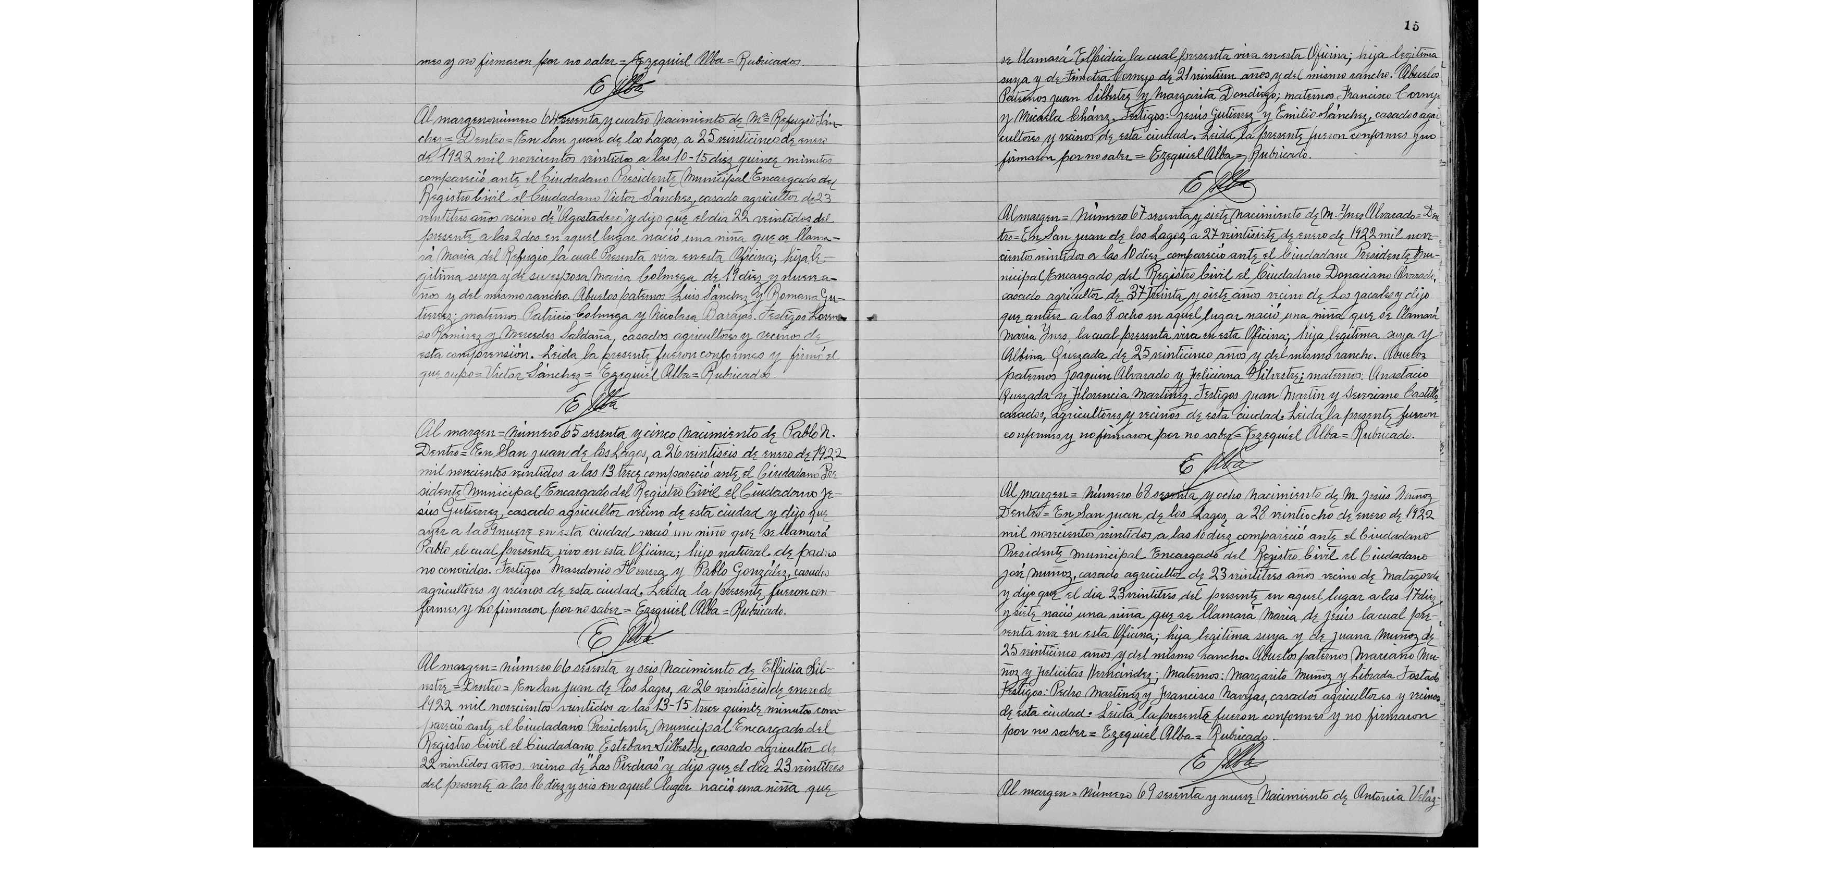 mes y no firmaron por no saber = Ezequiel Alba = Rubricados
E Alba
Al margen = número 64 sesenta y cuatro Nacimiento de Ma Refugio Sán-
chez = Dentro = En San Juan de los Lagos, a 25 veinticinco de enero
de 1922 mil novecientos veintidos a las 10-15 diez quince minutos
compareció ante el Ciudadano Presidente Municipal Encargado del
Registro Civil el Ciudadano Victor Sánchez, casado agricultor de 23
veintitres años vecino de "Agostadero" y dijo que el dia 22 veintidos del
presente a las 2 dos en aquel lugar nació una niña que se llama-
rá Maria del Refugio la cual Presenta viva en esta Oficina; hija le-
gitima suya y de su esposa Maria Colmega de 19 diez y nueve a-
ños y del mismo rancho. Abuelos paternos Luis Sánchez y Romana Gu-
tierrez; maternos Patricio Colmega y Nicolasa Barajas. Testigos Loren-
so Ramirez y Mercedes Saldaña, casados agricultores y vecinos de
esta comprensión. Leida la presente fueron conformes y firmó el
que supo = Victor Sánchez = Ezequiel Alba = Rubricados
E Alba
Al margen = Número 65 sesenta y cinco Nacimiento de Pablo N.
Dentro = En San Juan de los Lagos, a 26 veintiseis de enero de 1922
mil novecientos veintidos a las 13 trece compareció ante el Ciudadano Pre-
sidente Municipal Encargado del Registro Civil el Ciudadano Je-
sús Gutierrez, casado agricultor vecino de esta ciudad y dijo que
ayer a las 9 nueve en esta ciudad nació un niño que se llamará
Pablo el cual presenta vivo en esta Oficina; hijo natural de padres
no conocidos. Testigos Masedonio Herrera y Pablo González, casados
agricultores y vecinos de esta ciudad. Leida la presente fueron con-
formes y no firmaron por no saber = Ezequiel Alba = Rubricado.
E Alba
Al margen = número 66 sesenta y seis Nacimiento de Elpidia Sil-
vestre = Dentro = En San Juan de los Lagos, a 26 veintiseis de enero de
1922 mil novecientos veintidos a las 13-15 trece quince minutos com-
pareció ante el Ciudadano Presidente Municipal Encargado del
Registro Civil el Ciudadano Esteban Silbestre, casado agricultor de
22 veintidos años vecino de "Las Piedras" y dijo que el dia 23 veintitres
del presente a las 16 diez y seis en aquel lugar nació una niña que
15
se llamará Elpidia la cual presenta viva en esta Oficina; hija legitima
suya y de Cornejo de 21 veintiun años y del mismo rancho. Abuelos
Paternos Juan Silbestre y Margarita Dondiego; maternos Francisco Cornejo
y Micaela Chávez. Testigos: Jesús Gutierrez y Emilio Sánchez, casados agri
cultores y vecinos de esta ciudad. Leida la presente fueron conformes y no
firmaron por no saber = Ezequiel Alba = Rubricado.
E Alba
Al margen = Número 67 sesenta y siete Nacimiento de M. Ynes Alvarado = Den
tro = En San Juan de los Lagos, a 27 veintisiete de enero de 1922 mil nove-
cientos veintidos a las 10 diez compareció ante el Ciudadano Presidente Mu-
nicipal Encargado del Registro Civil el Ciudadano Donaciano Alvarado,
casado agricultor de 37 treinta y siete años vecino de Los Jacales y dijo
que antier a las 8 ocho en aquel lugar nació una niña que se llamará
Maria Ynes, la cual presenta viva en esta Oficina; hija legitima suya y
Albina Quezada de 25 veinticinco años y del mismo rancho. Abuelos
paternos Joaquin Alvarado y Feliciana Silvestre; maternos: Anastacio
Quezada y Florencia Martinez. Testigos Juan Martin y Severiano Castillo
casados, agricultores y vecinos de esta ciudad. Leida la presente fueron
conformes y no firmaron por no saber = Ezequiel Alba = Rubricado.
E Alba
Al margen = Número 68 sesenta y ocho Nacimiento de M. Jesús Muñoz
Dentro = En San Juan de los Lagos, a 28 veintiocho de enero de 1922
mil novecientos veintidos a las 10 diez compareció ante el Ciudadano
Presidente Municipal Encargado del Registro Civil el Ciudadano
José Muñoz, casado agricultor de 23 veintitres años vecino de Matagorda
y dijo que el dia 23 veintitres del presente en aquel lugar a las 17 diez
y siete nació una niña que se llamará Maria de Jesús la cual pre-
senta viva en esta Oficina; hija legitima suya y de Juana Muñoz de
25 veinticinco años y del mismo rancho. Abuelos paternos Mariano Mu-
ñoz y Felicitas Hernández; Maternos: Margarito Muñoz y Librada Tostado
Testigos: Pedro Martinez y Francisco Navejas, casados agricultores y vecinos
de esta ciudad. Leida la presente fueron conformes y no firmaron
por no saber = Ezequiel Alba = Rubricado.
E Alba
Al margen = Número 69 sesenta y nueve Nacimiento de Antonia Veláz-